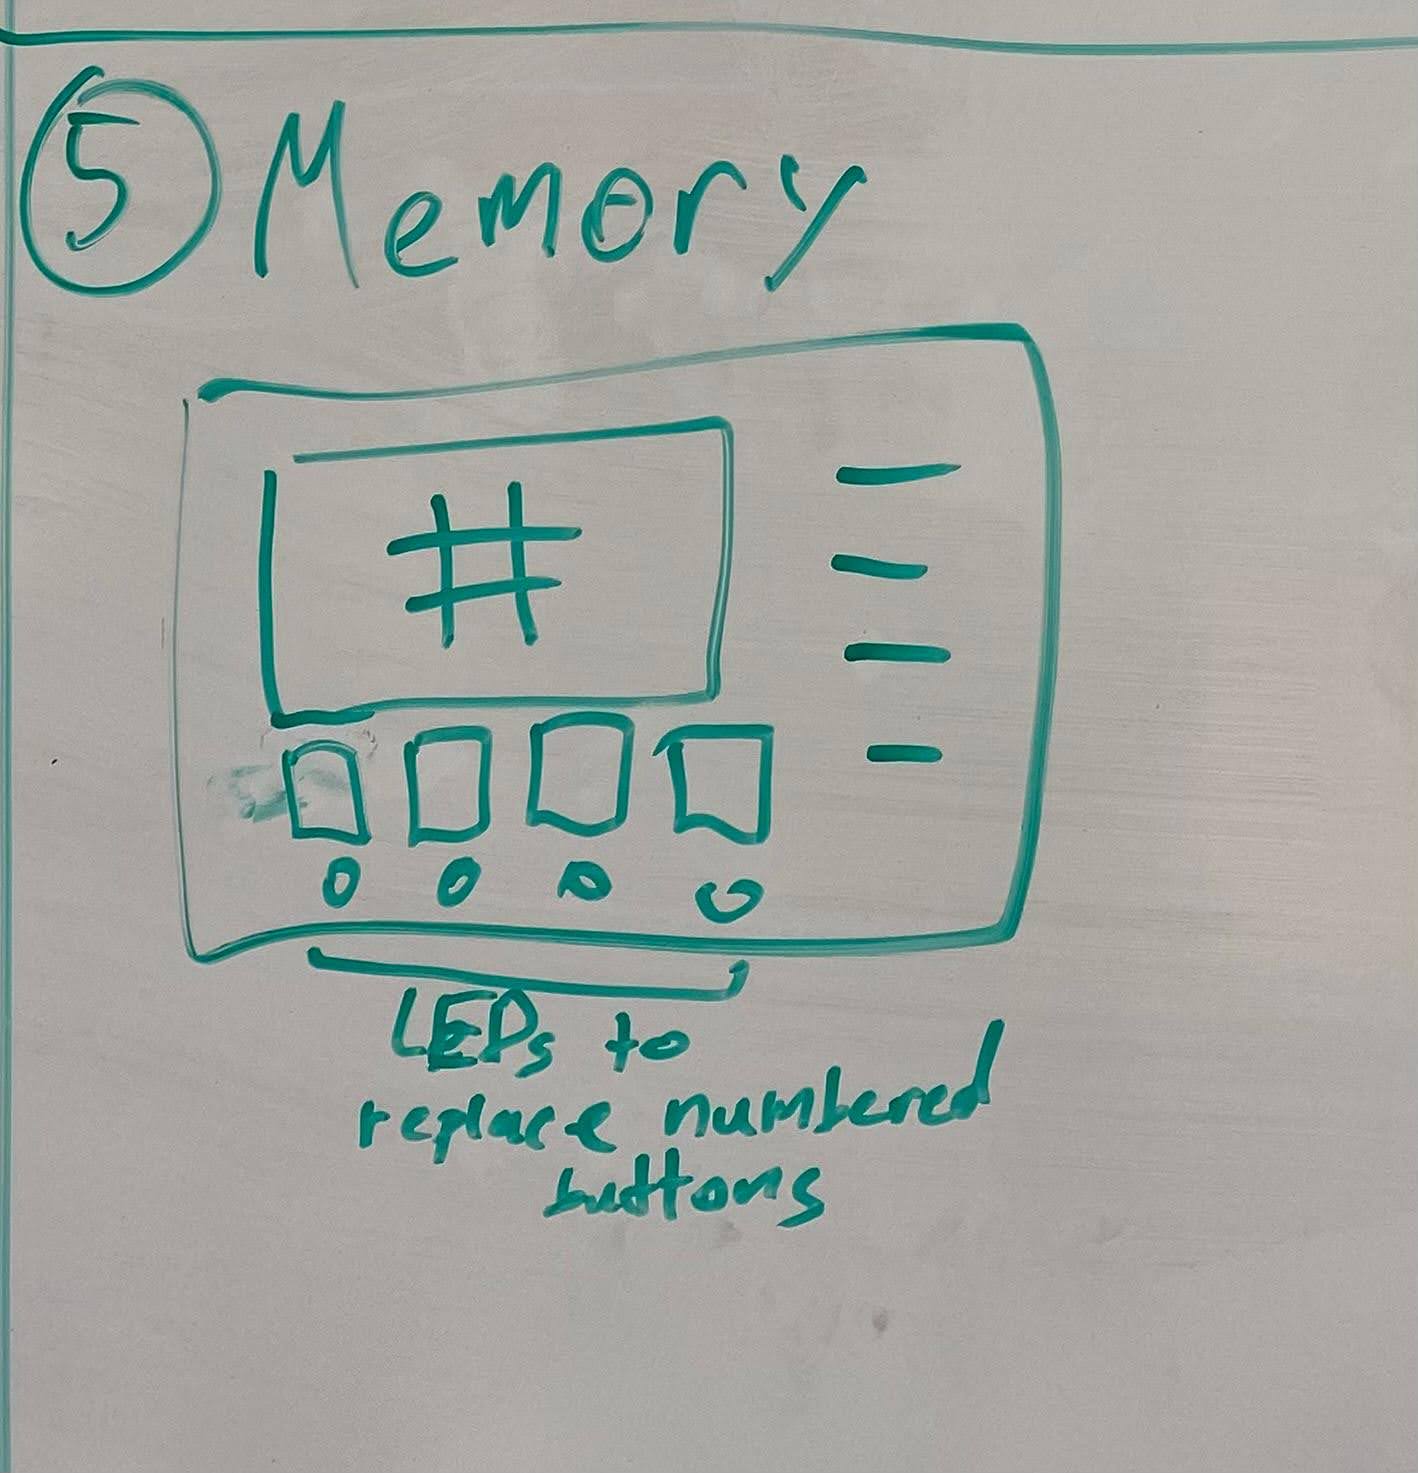 5 Memory
#
LEDs to
replace numbered
buttons